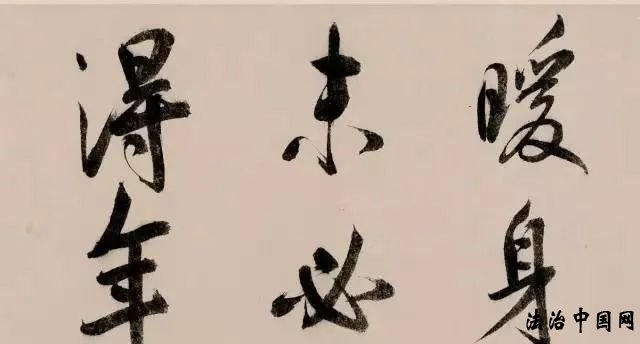 暖身
未必
得年
法治中国网